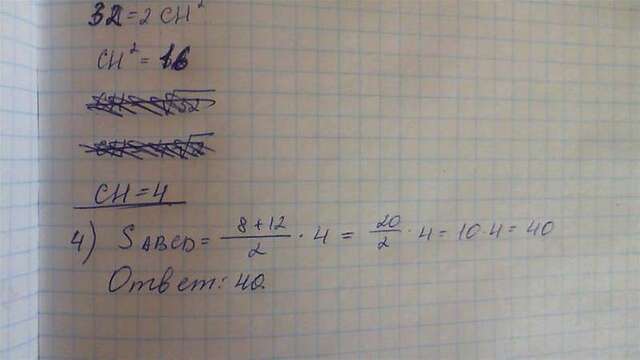 32 = 2 CH²
CH² = 16
CH = 4
4) S ABCD = (8+12)/2 · 4 = 20/2 · 4 = 10 · 4 = 40
Ответ: 40.